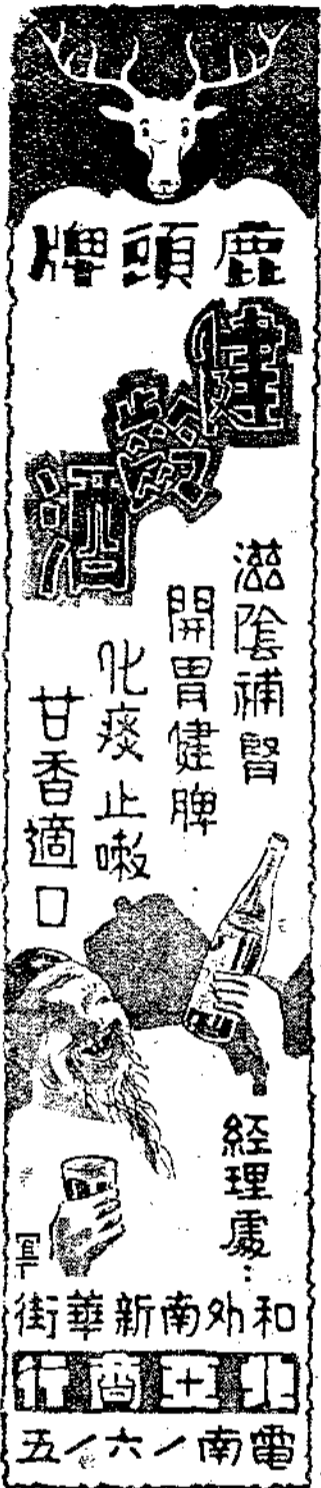 鹿頭牌
健齡酒
滋陰補腎
開胃健脾
化痰止嗽
甘香適口
経理處：
和外南新華街
北土商行
電南一六一五